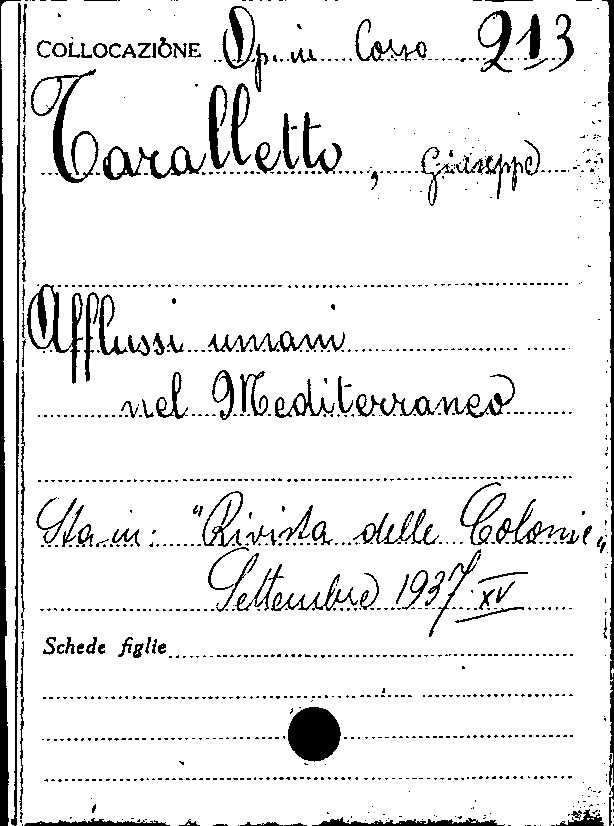 COLLOCAZIONE Op. in Corso 213
Taralletto, Giuseppe
Afflussi umani
nel Mediterraneo
Sta in: "Rivista delle Colonie"
Settembre 1937 XV
Schede figlie